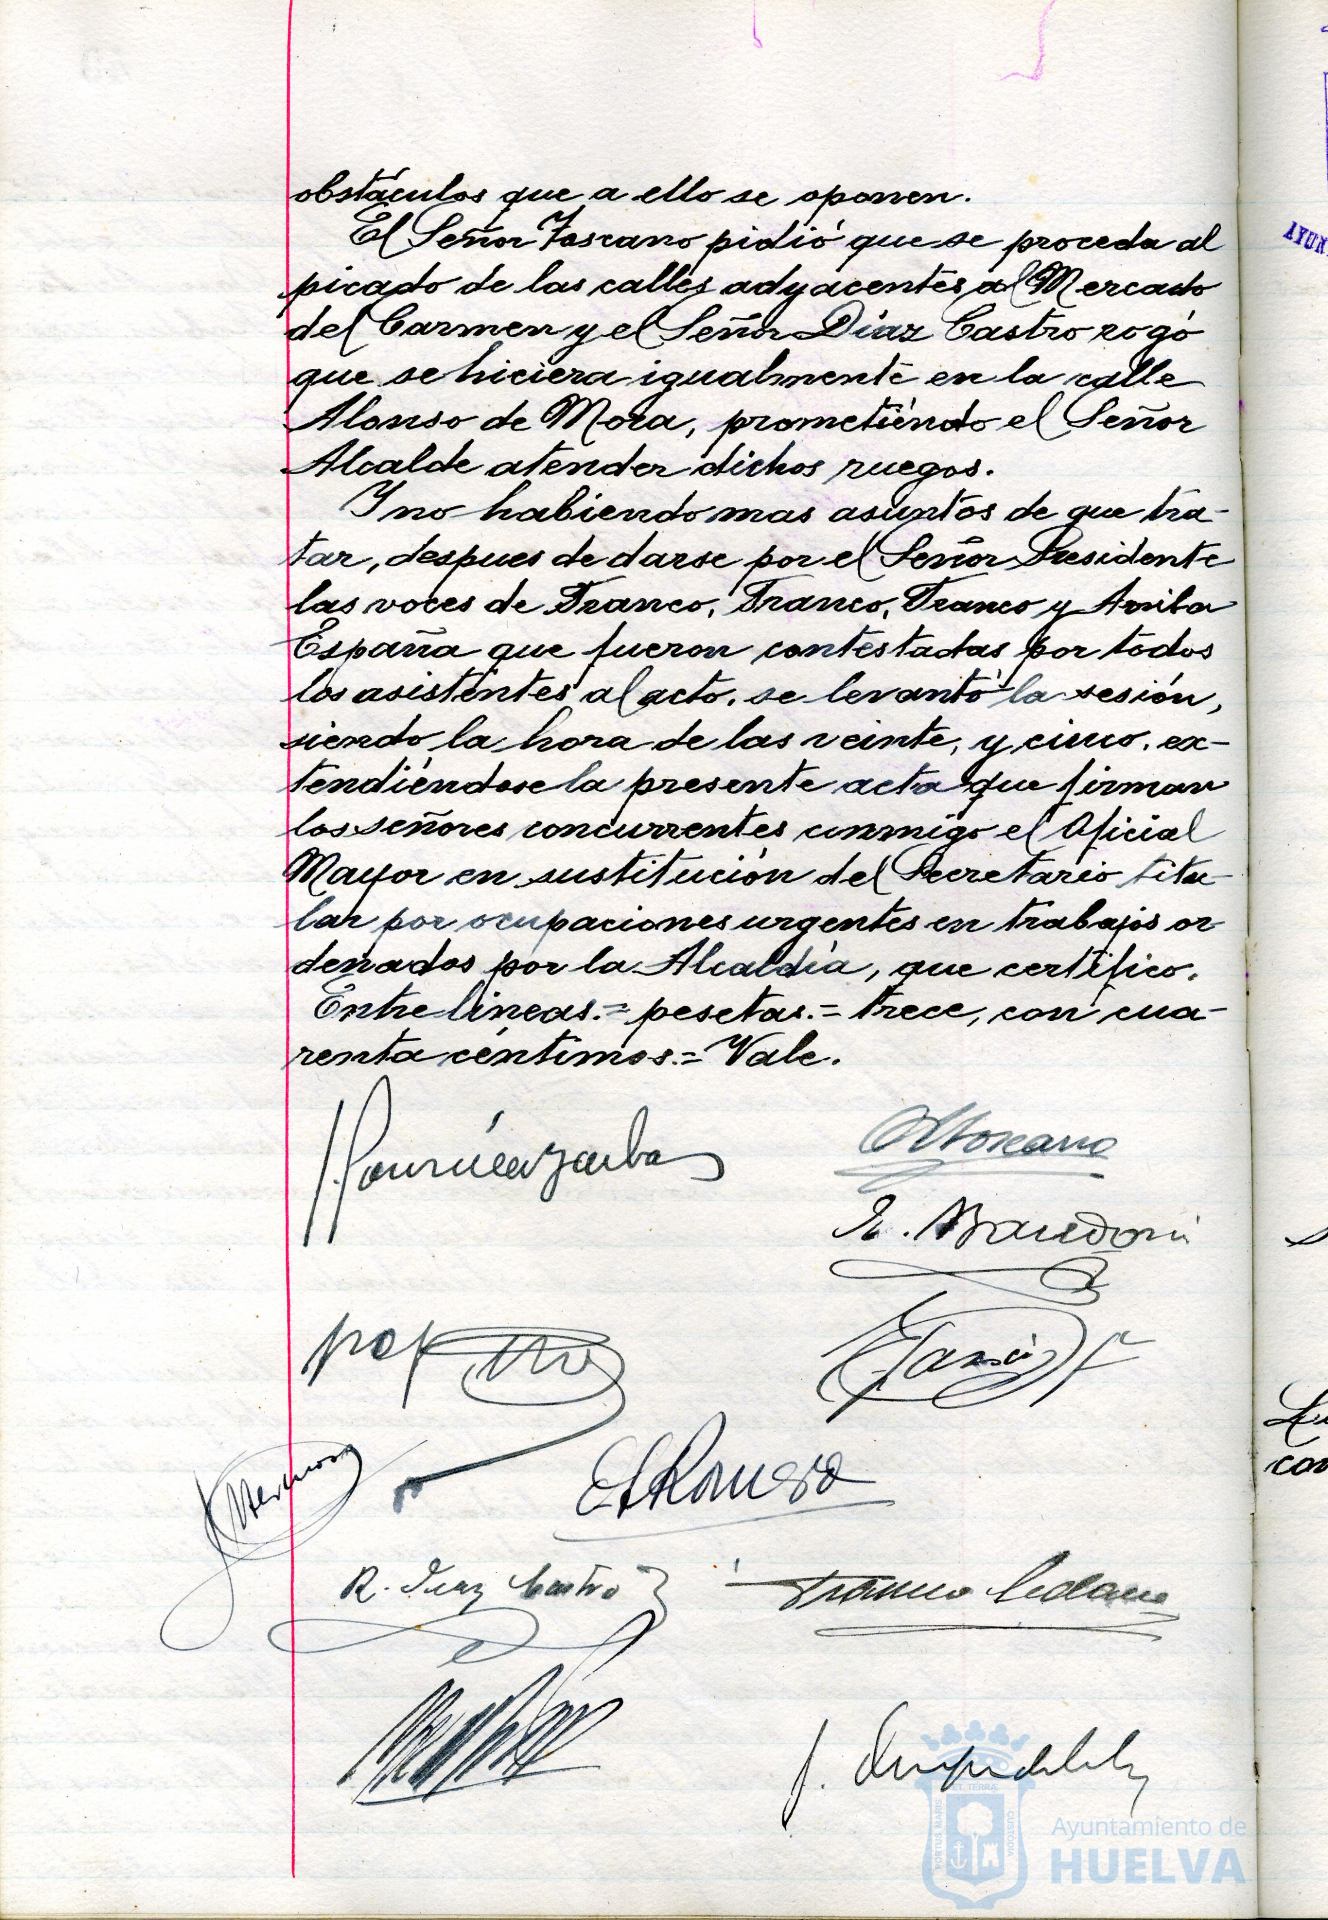 obstáculos que a ello se oponen.
El Señor Toscano pidió que se proceda al
picado de las calles adyacentes al Mercado
del Carmen y el Señor Díaz Castro rogó
que se hiciera igualmente en la calle
Alonso de Mora, prometiéndo el Señor
Alcalde atender dichos ruegos.
Y no habiendo mas asuntos de que tra-
tar, despues de darse por el Señor Presidente
las voces de Franco, Franco, Franco y Arriba
España que fueron contestadas por todos
los asistentes al acto, se levantó la sesión,
siendo la hora de las veinte, y cinco, ex-
tendiéndose la presente acta que firman
los señores concurrentes conmigo el Oficial
Mayor en sustitución del Secretario titu-
lar por ocupaciones urgentes en trabajos or
denados por la Alcaldía, que certifico.
Entre líneas.= pesetas.= trece, con cua-
renta céntimos.= Vale.
Toscano
R. Díaz Castro
PORTUS MARIS
ET TERRAE
CUSTODIA
Ayuntamiento de
HUELVA
AYUN